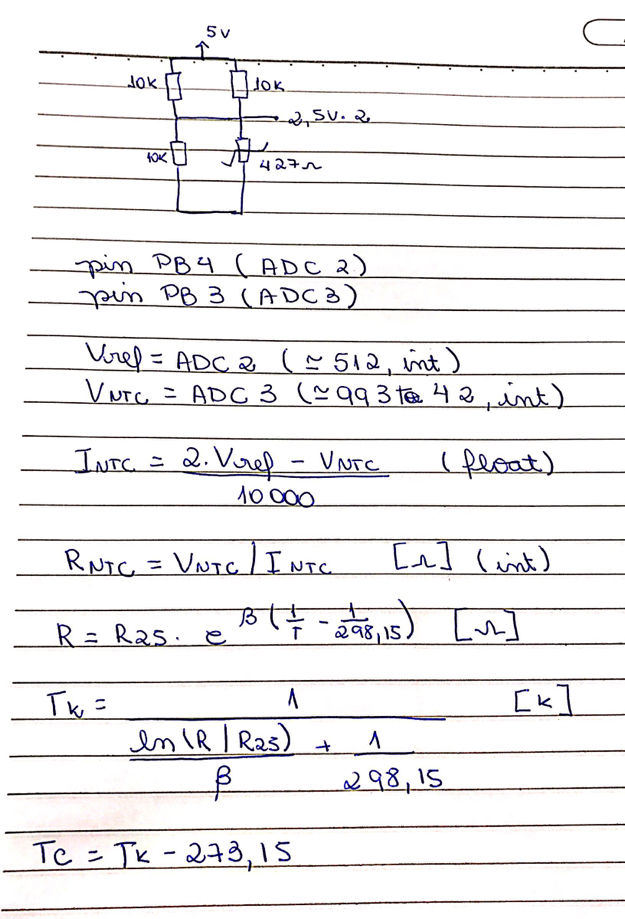 5V
10K 10K
2,5V. 2
10K 427Ω
pin PB4 (ADC 2)
pin PB3 (ADC3)
Vref = ADC2 (≃ 512, int)
VNTC = ADC3 (≃993 to 42, int)
INTC = 2.Vref - VNTC (float)
10 000
RNTC = VNTC / INTC [Ω] (int)
R = R25. e β(1/T - 1/298,15) [Ω]
TK = 1 [K]
ln(R / R25) + 1
β 298,15
TC = TK - 273,15